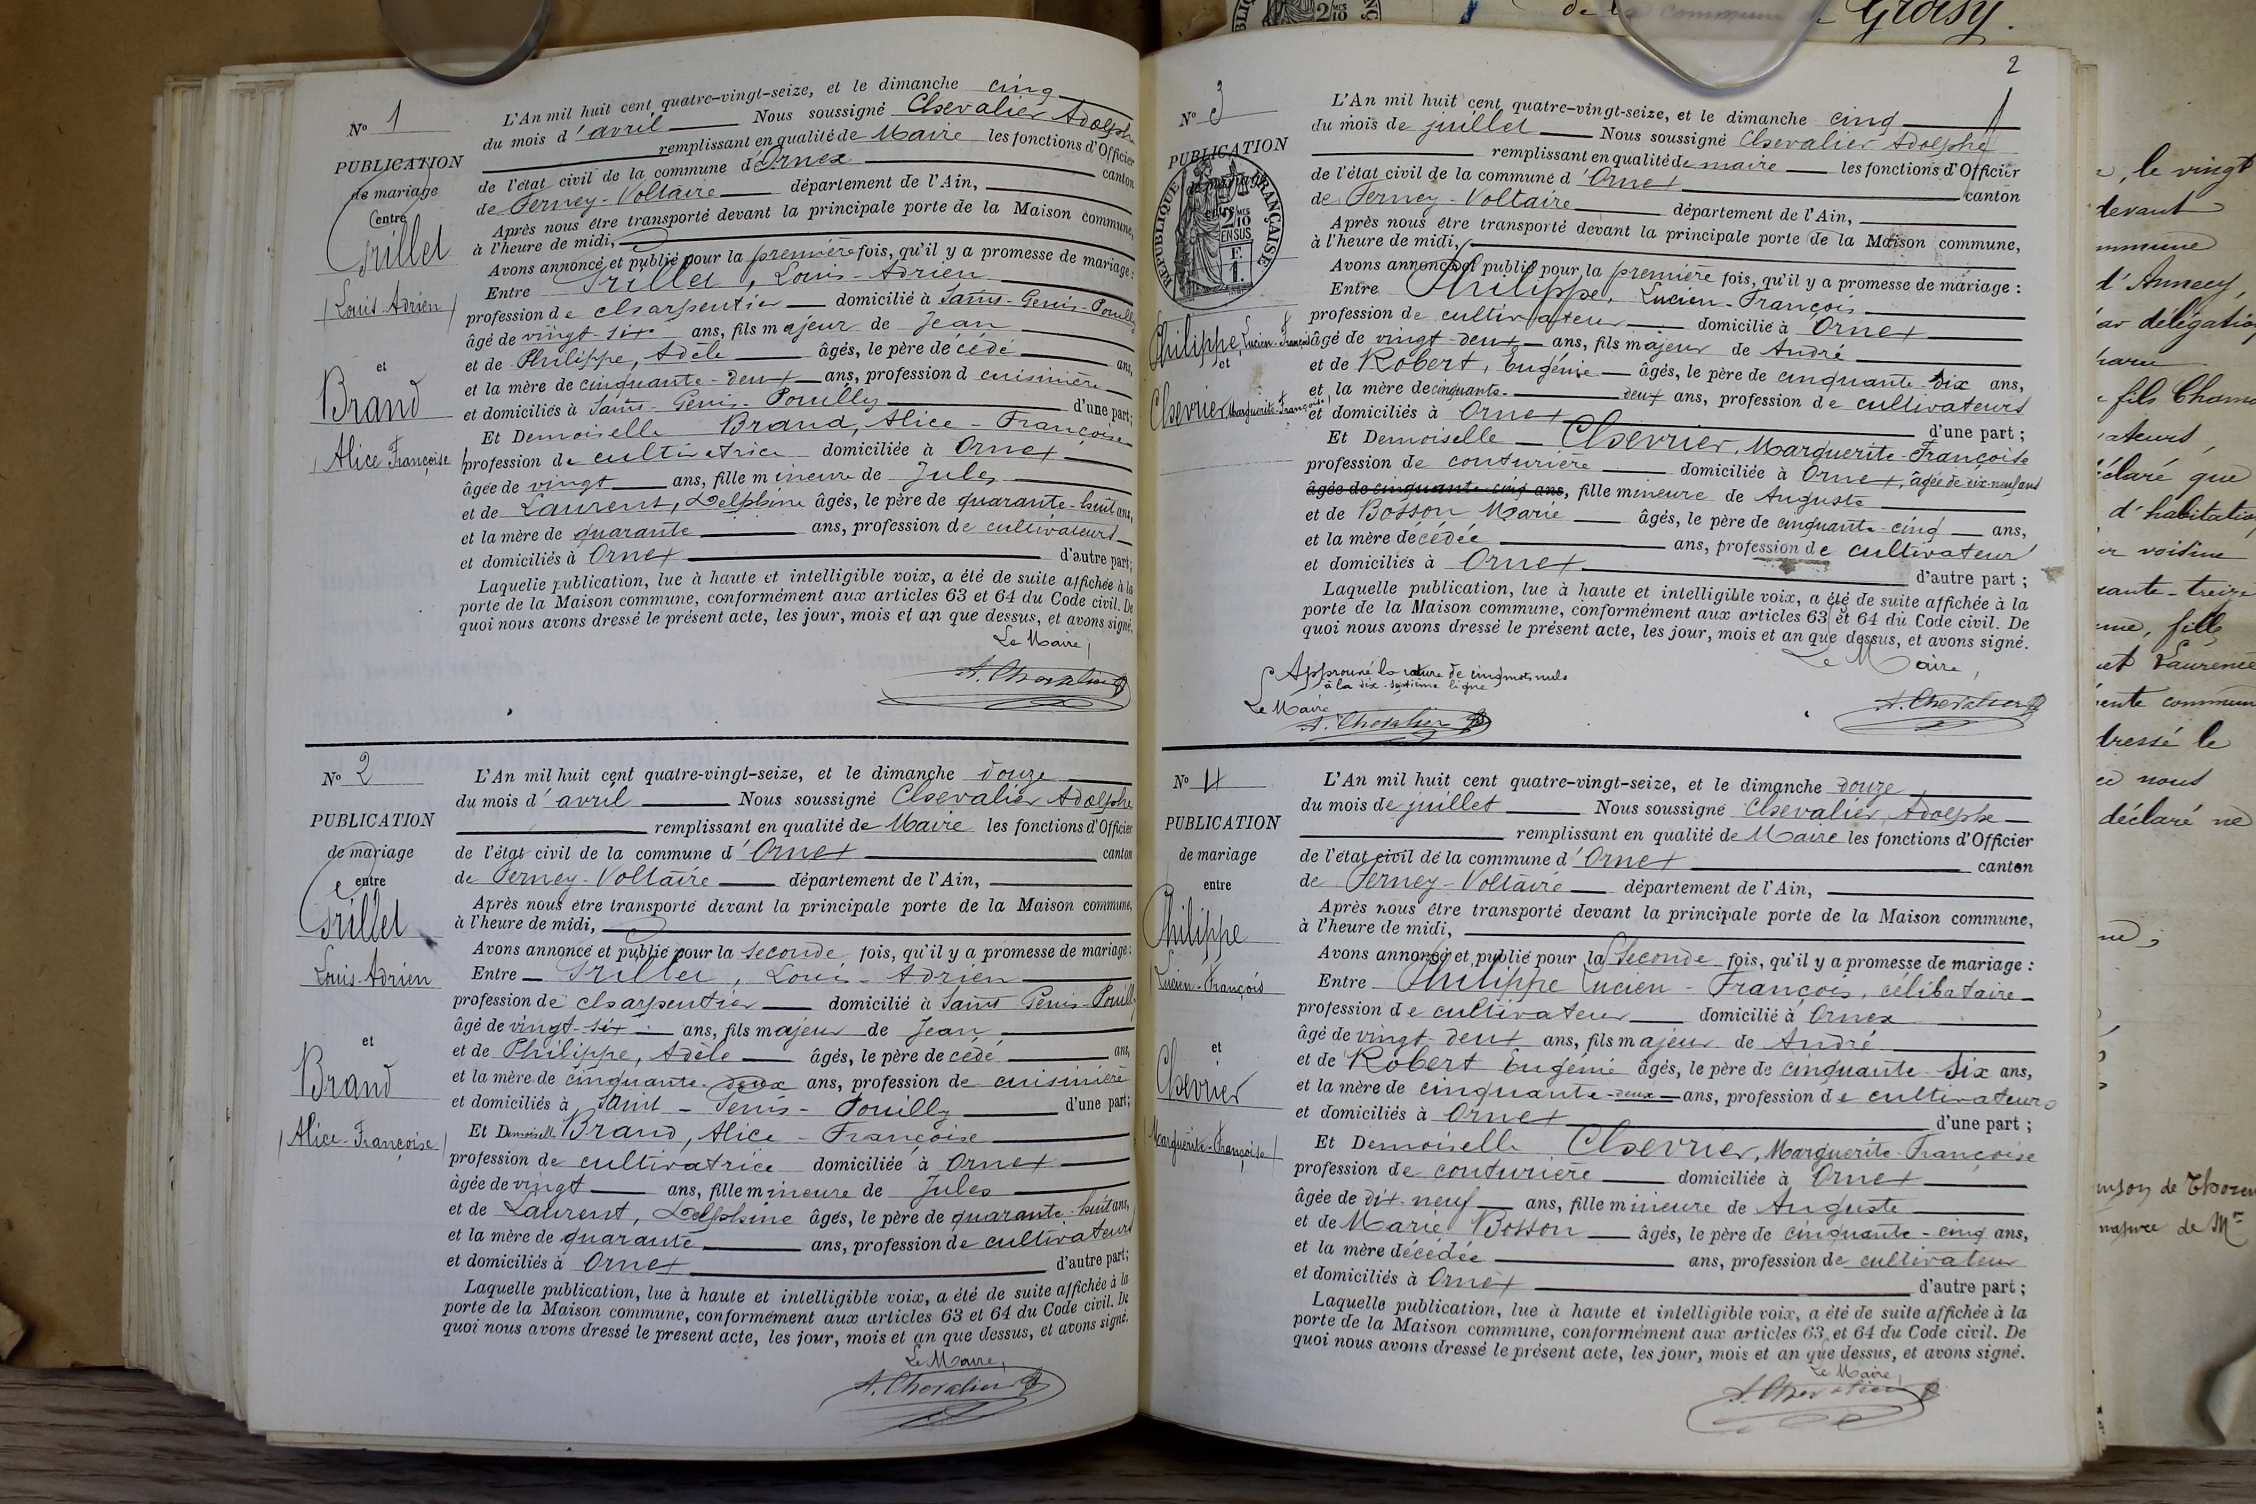 N° 1
PUBLICATION
de mariage
entre
Grillet
Louis-Adrien
et
Brand
Alice Françoise
L'An mil huit cent quatre-vingt-seize, et le dimanche cinq
du mois d'avril Nous soussigné Chevalier Adolphe
remplissant en qualité de Maire les fonctions d'Officier
de l'état civil de la commune d'Ornex canton
de Ferney-Voltaire département de l'Ain,
Après nous être transporté devant la principale porte de la Maison commune,
à l'heure de midi,
Avons annoncé et publié pour la première fois, qu'il y a promesse de mariage:
Entre Grillet, Louis-Adrien
profession de charpentier domicilié à Saint-Genis-Pouilly
âgé de vingt-six ans, fils majeur de Jean
et de Philippe, Adèle âgés, le père décédé ans,
et la mère de cinquante-deux ans, profession d cuisinière
et domiciliés à Saint-Genis-Pouilly d'une part;
Et Demoiselle Brand, Alice-Françoise
profession de cultivatrice domiciliée à Ornex
âgée de vingt ans, fille mineure de Jules
et de Laurent, Delphine âgés, le père de quarante-huit ans,
et la mère de quarante ans, profession de cultivateurs
et domiciliés à Ornex d'autre part;
Laquelle publication, lue à haute et intelligible voix, a été de suite affichée à la
porte de la Maison commune, conformément aux articles 63 et 64 du Code civil. De
quoi nous avons dressé le présent acte, les jour, mois et an que dessus, et avons signé.
Le Maire,
A. Chevalier
N° 2
PUBLICATION
de mariage
entre
Grillet
Louis-Adrien
et
Brand
Alice-Françoise
L'An mil huit cent quatre-vingt-seize, et le dimanche douze
du mois d'avril Nous soussigné Chevalier Adolphe
remplissant en qualité de Maire les fonctions d'Officier
de l'état civil de la commune d'Ornex canton
de Ferney-Voltaire département de l'Ain,
Après nous être transporté devant la principale porte de la Maison commune,
à l'heure de midi,
Avons annoncé et publié pour la seconde fois, qu'il y a promesse de mariage:
Entre Grillet, Louis-Adrien
profession de charpentier domicilié à Saint Genis-Pouilly
âgé de vingt-six ans, fils majeur de Jean
et de Philippe, Adèle âgés, le père décédé ans,
et la mère de cinquante-deux ans, profession de cuisinière
et domiciliés à Saint-Genis-Pouilly d'une part;
Et Demoiselle Brand, Alice-Françoise
profession de cultivatrice domiciliée à Ornex
âgée de vingt ans, fille mineure de Jules
et de Laurent, Delphine âgés, le père de quarante-huit ans,
et la mère de quarante ans, profession de cultivateurs
et domiciliés à Ornex d'autre part;
Laquelle publication, lue à haute et intelligible voix, a été de suite affichée à la
porte de la Maison commune, conformément aux articles 63 et 64 du Code civil. De
quoi nous avons dressé le présent acte, les jour, mois et an que dessus, et avons signé.
Le Maire,
A. Chevalier
2
N° 3
PUBLICATION
de mariage
entre
RÉPUBLIQUE FRANÇAISE
2 MES
10
EN SUS
F.
1.
Philippe, Lucien-François
et
Chevrier, Marguerite-Françoise
L'An mil huit cent quatre-vingt-seize, et le dimanche cinq
du mois de juillet Nous soussigné Chevalier Adolphe
remplissant en qualité de maire les fonctions d'Officier
de l'état civil de la commune d'Ornex canton
de Ferney-Voltaire département de l'Ain,
Après nous être transporté devant la principale porte de la Maison commune,
à l'heure de midi,
Avons annoncé et publié pour la première fois, qu'il y a promesse de mariage:
Entre Philippe, Lucien-François
profession de cultivateur domicilié à Ornex
âgé de vingt-deux ans, fils majeur de André
et de Robert, Eugénie âgés, le père de cinquante-six ans,
et la mère de cinquante-deux ans, profession de cultivateurs
et domiciliés à Ornex d'une part;
Et Demoiselle Chevrier, Marguerite-Françoise
profession de couturière domiciliée à Ornex, âgée de dix-neuf ans
âgée de cinquante-cinq ans, fille mineure de Auguste
et de Bosson Marie âgés, le père de cinquante-cinq ans,
et la mère décédée ans, profession de cultivateur
et domiciliés à Ornex d'autre part;
Laquelle publication, lue à haute et intelligible voix, a été de suite affichée à la
porte de la Maison commune, conformément aux articles 63 et 64 du Code civil. De
quoi nous avons dressé le présent acte, les jour, mois et an que dessus, et avons signé.
Le Maire,
A. Chevalier
Approuvé la rature de cinq mots nuls
à la dix-septième ligne
Le Maire
A. Chevalier
N° 4
PUBLICATION
de mariage
entre
Philippe
Lucien-François
et
Chevrier
Marguerite-Françoise
L'An mil huit cent quatre-vingt-seize, et le dimanche douze
du mois de juillet Nous soussigné Chevalier, Adolphe
remplissant en qualité de Maire les fonctions d'Officier
de l'état civil de la commune d'Ornex canton
de Ferney-Voltaire département de l'Ain,
Après nous être transporté devant la principale porte de la Maison commune,
à l'heure de midi,
Avons annoncé et publié pour la Seconde fois, qu'il y a promesse de mariage:
Entre Philippe Lucien-François, célibataire
profession de cultivateur domicilié à Ornex
âgé de vingt-deux ans, fils majeur de André
et de Robert Eugénie âgés, le père de cinquante-six ans,
et la mère de cinquante-deux ans, profession de cultivateurs
et domiciliés à Ornex d'une part;
Et Demoiselle Chevrier, Marguerite-Françoise
profession de couturière domiciliée à Ornex
âgée de dix-neuf ans, fille mineure de Auguste
et de Marie Bosson âgés, le père de cinquante-cinq ans,
et la mère décédée ans, profession de cultivateur
et domiciliés à Ornex d'autre part;
Laquelle publication, lue à haute et intelligible voix, a été de suite affichée à la
porte de la Maison commune, conformément aux articles 63 et 64 du Code civil. De
quoi nous avons dressé le présent acte, les jour, mois et an que dessus, et avons signé.
Le Maire,
A. Chevalier
de la commune de Groisy.
le vingt
devant
d'Annecy,
délégation
fils
déclaré que
d'habitation
voisine
fille
Laurence
dressé le
nous
déclaré ne
de
de Mr